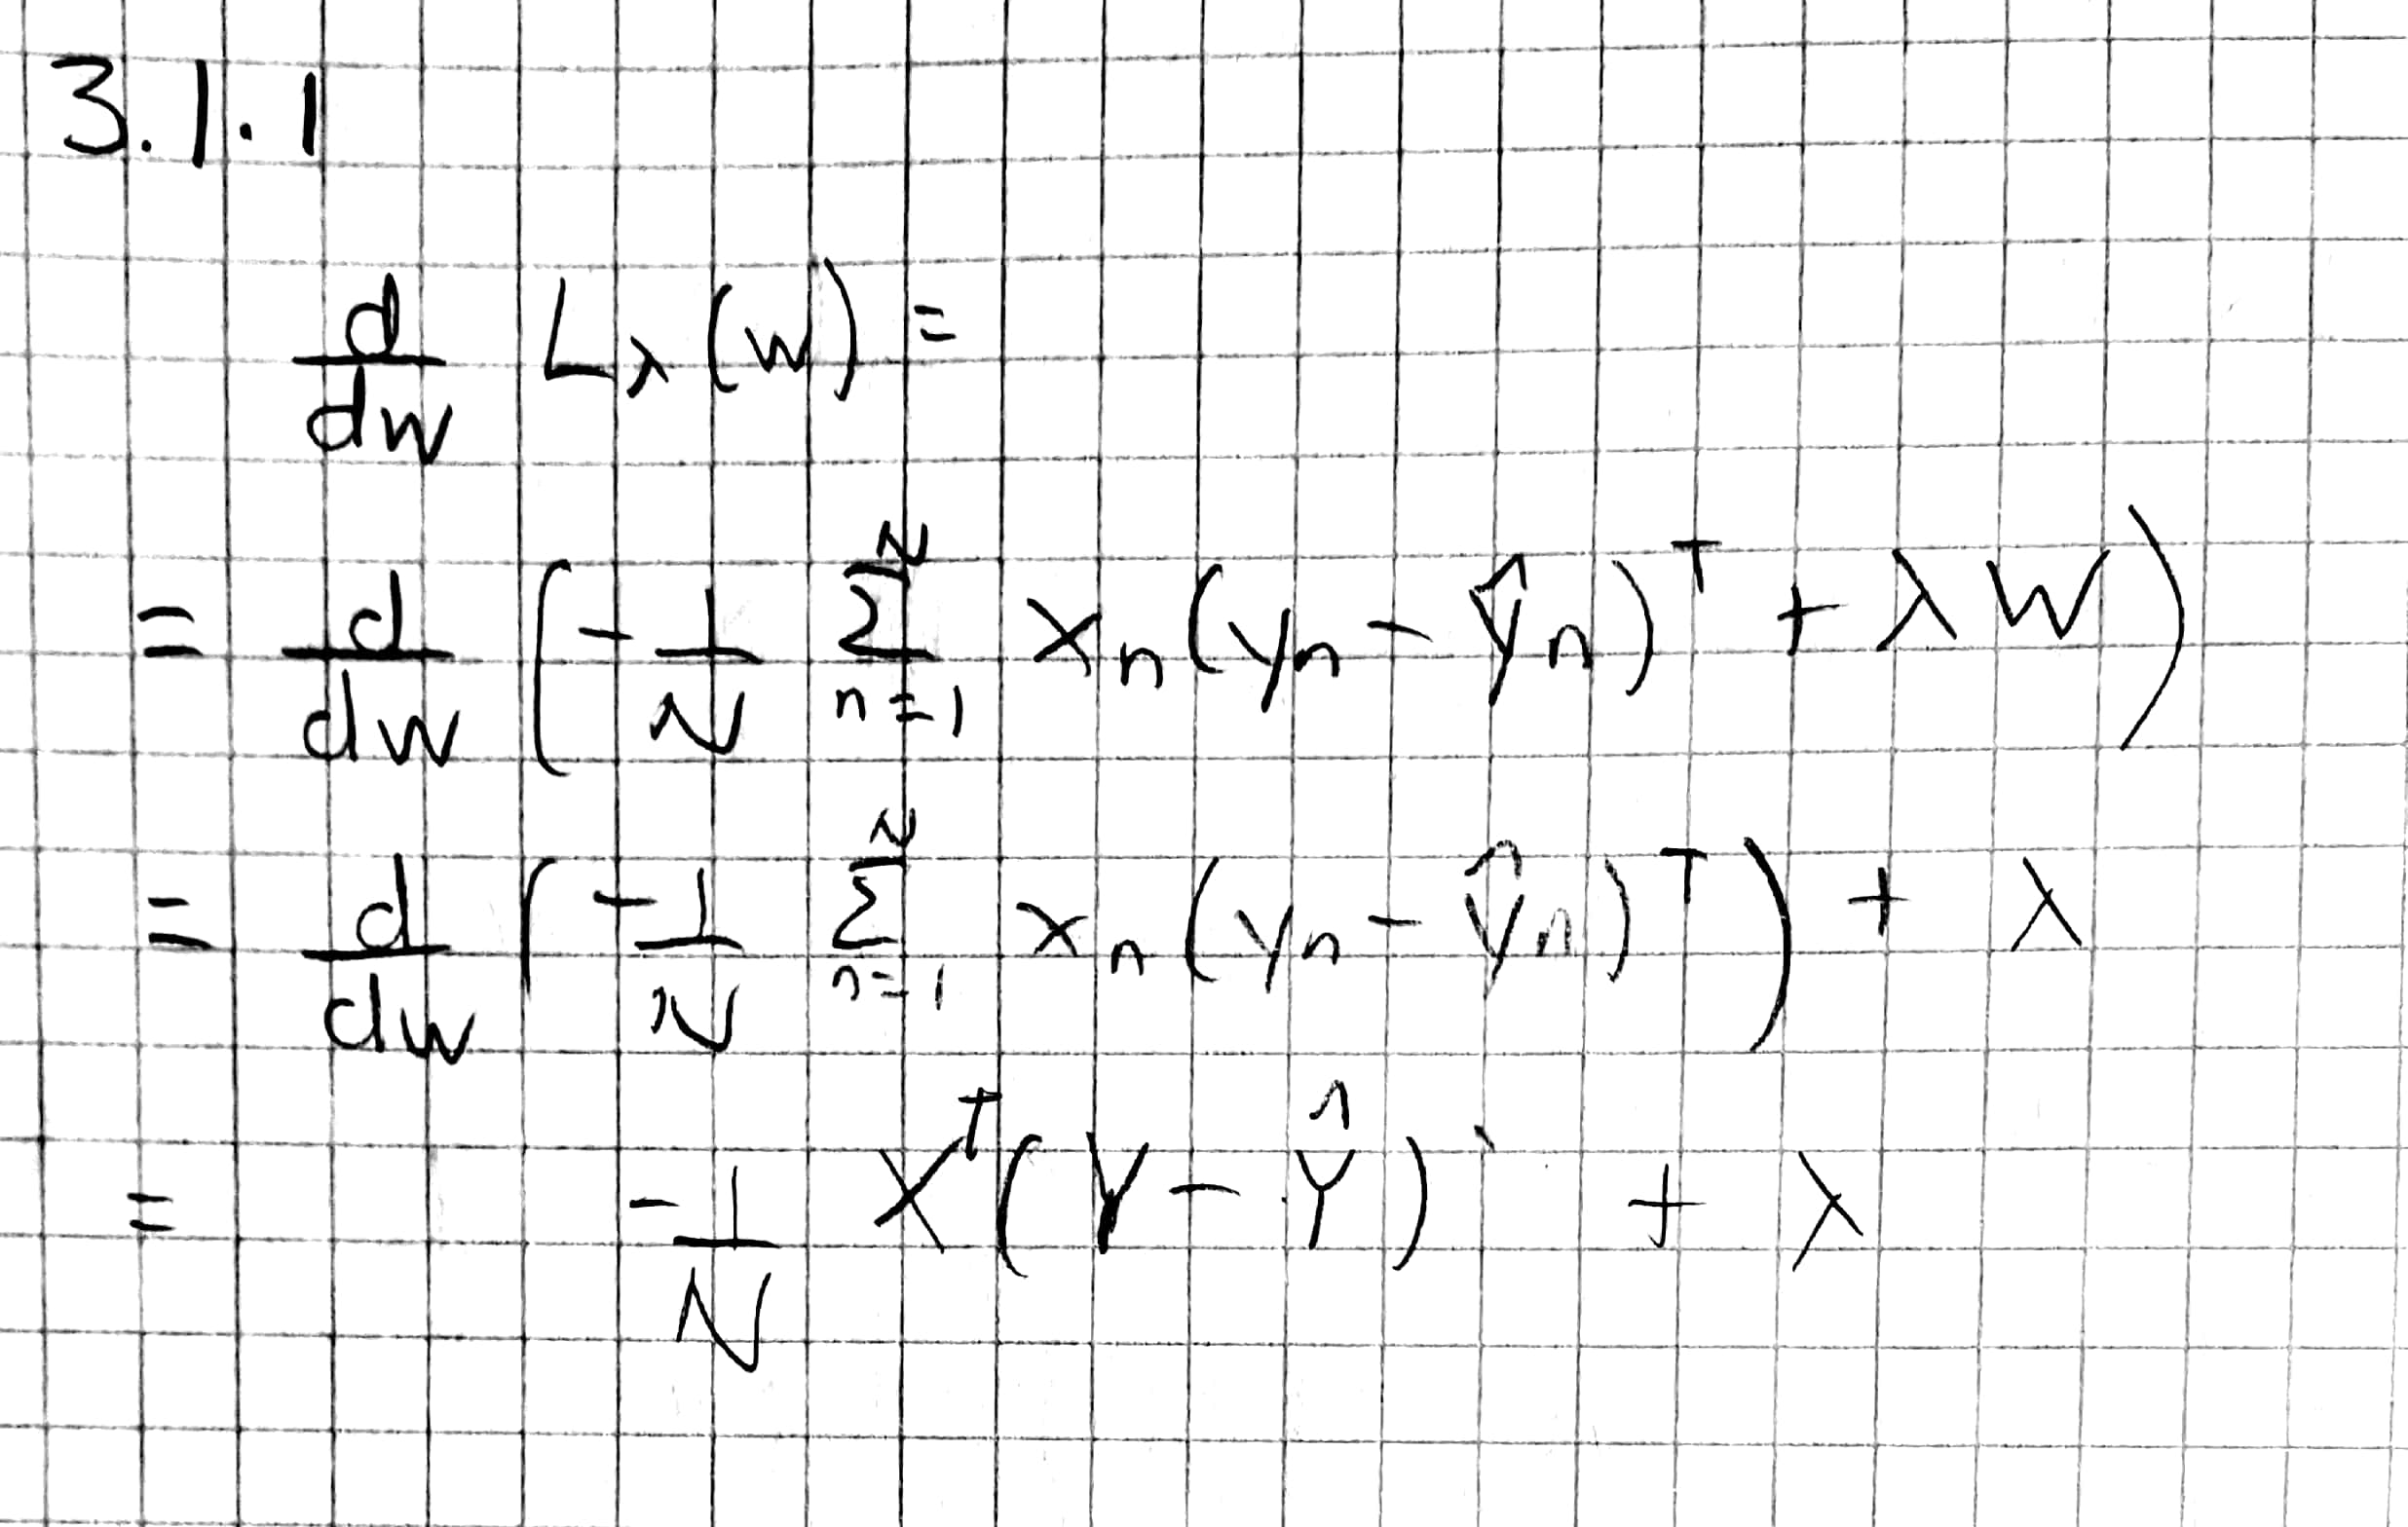 3.1.1
d/dw L_λ(w) =
= d/dw ( -1/N Σ_{n=1}^{N} x_n (y_n - ŷ_n)^T + λ W )
= d/dw ( -1/N Σ_{n=1}^{N} x_n (y_n - ŷ_n)^T ) + λ
= -1/N X^T (Y - Ŷ) + λ